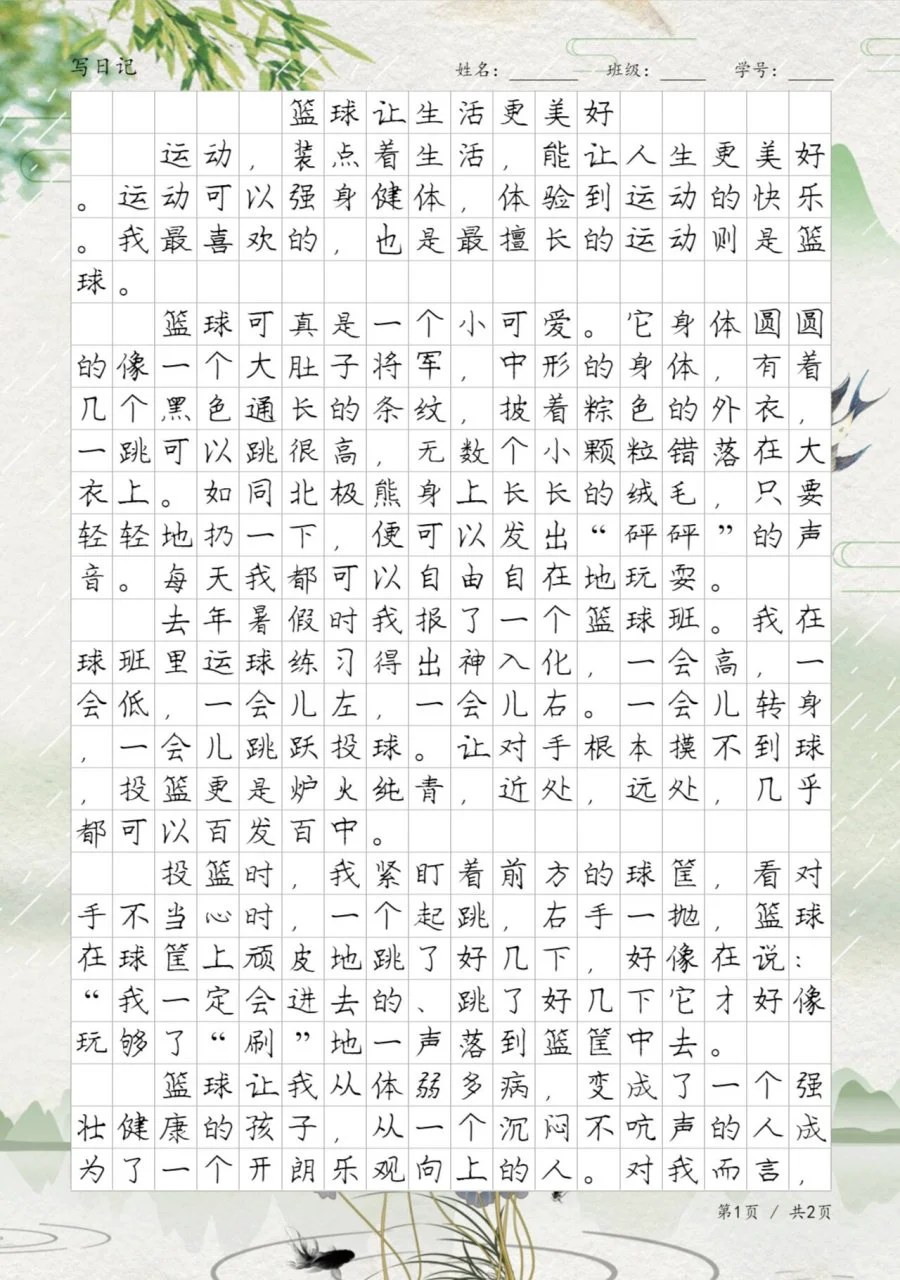 写日记 姓名:______ 班级:____ 学号:____
篮球让生活更美好
运动,装点着生活,能让人生更美好
。运动可以强身健体,体验到运动的快乐
。我最喜欢的,也是最擅长的运动则是篮
球。
篮球可真是一个小可爱。它身体圆圆
的像一个大肚子将军,中形的身体,有着
几个黑色通长的条纹,披着粽色的外衣,
一跳可以跳很高,无数个小颗粒错落在大
衣上。如同北极熊身上长长的绒毛,只要
轻轻地扔一下,便可以发出“砰砰”的声
音。每天我都可以自由自在地玩耍。
去年暑假时我报了一个篮球班。我在
球班里运球练习得出神入化,一会高,一
会低,一会儿左,一会儿右。一会儿转身
,一会儿跳跃投球。让对手根本摸不到球
,投篮更是炉火纯青,近处,远处,几乎
都可以百发百中。
投篮时,我紧盯着前方的球筐,看对
手不当心时,一个起跳,右手一抛,篮球
在球筐上顽皮地跳了好几下,好像在说:
“我一定会进去的、跳了好几下它才好像
玩够了“刷”地一声落到篮筐中去。
篮球让我从体弱多病,变成了一个强
壮健康的孩子,从一个沉闷不吭声的人成
为了一个开朗乐观向上的人。对我而言,
第1页 / 共2页